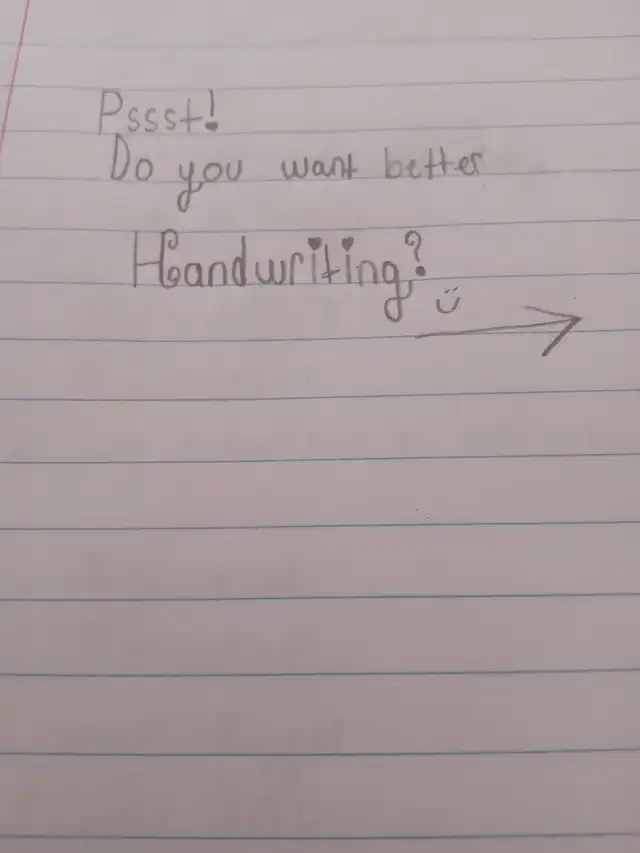 Pssst!
Do you want better
Handwriting?